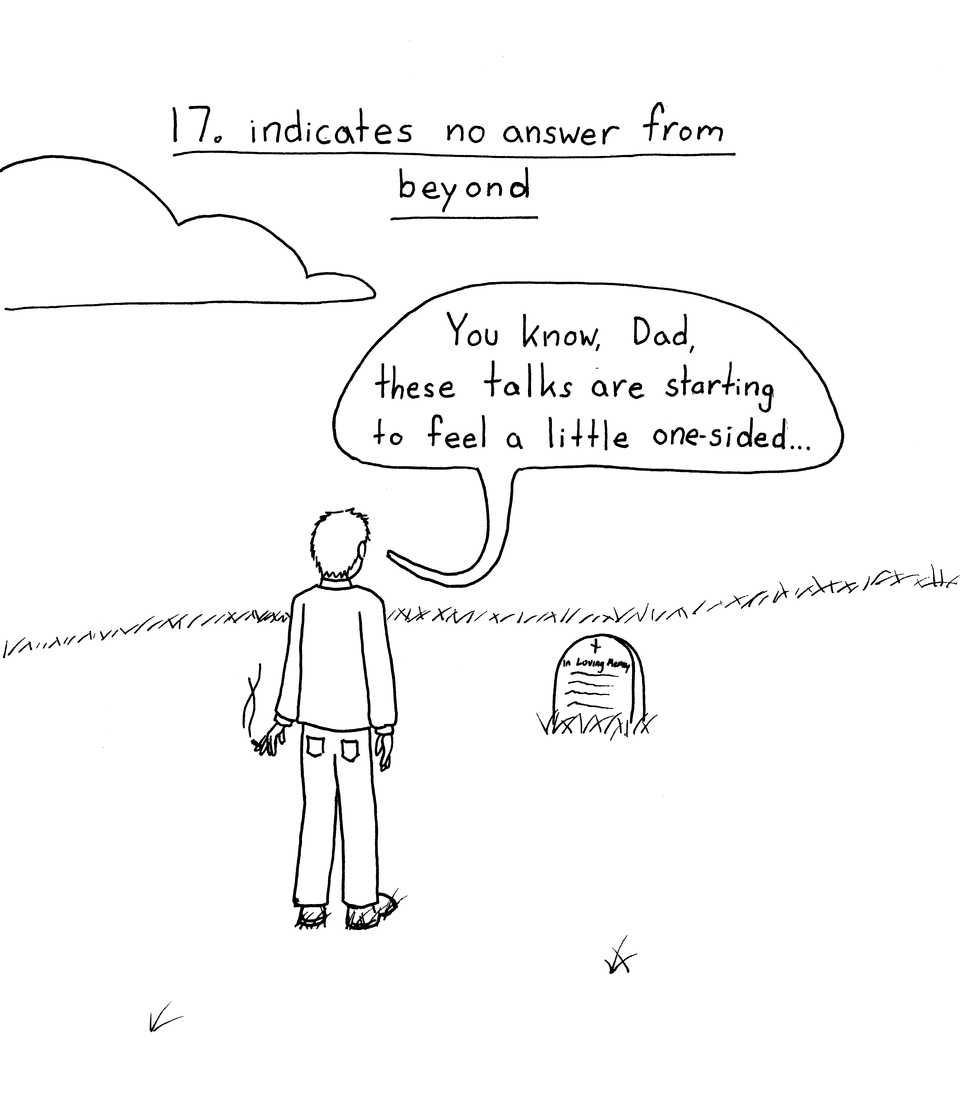 17. indicates no answer from
beyond
You know, Dad,
these talks are starting
to feel a little one-sided...
In Loving Memory